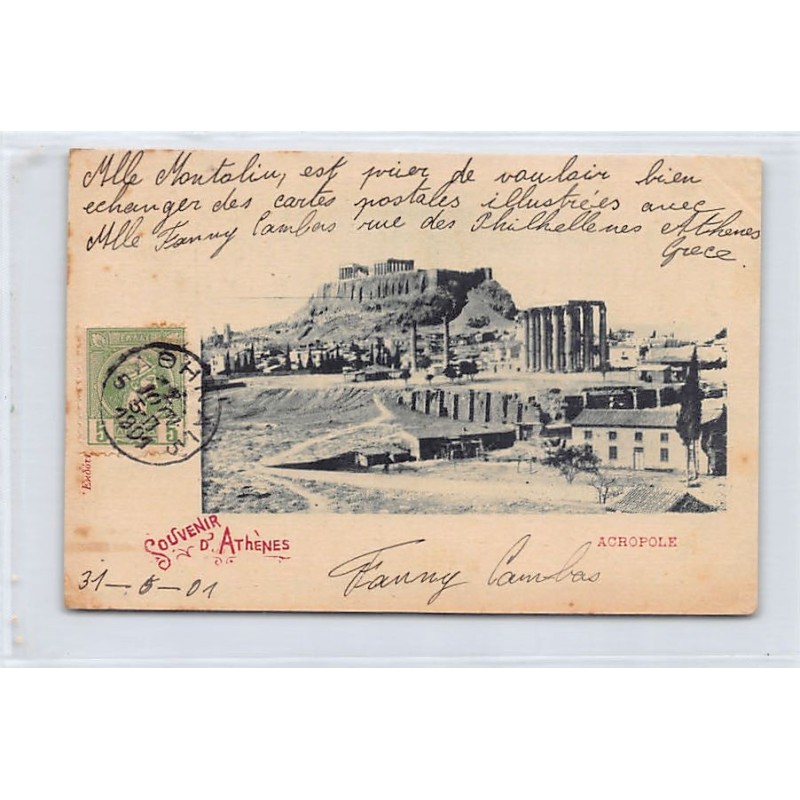 Mlle Montaliu, est prier de vouloir bien
echanger des cartes postales illustrées avec
Mlle Fanny Cambas rue des Philhellenes Athenes
Grece
5 5
1901
SOUVENIR
D'ATHÈNES
ACROPOLE
31-5-01
Fanny Cambas